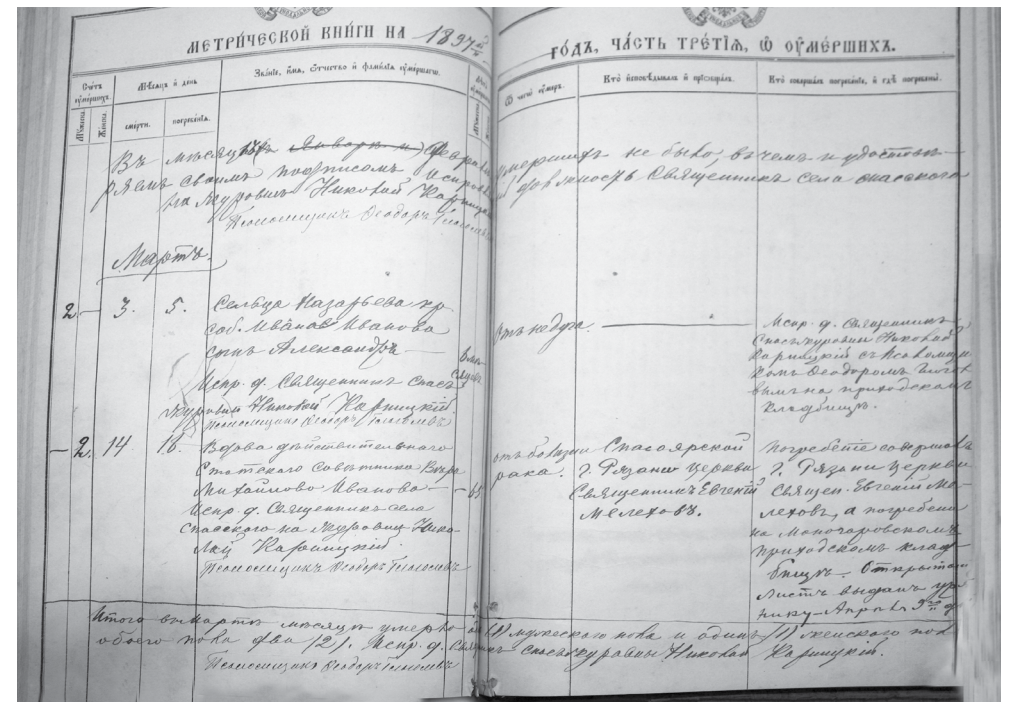 МЕТРИ́ЧЕСКОЙ КНИ́ГИ НА 1897й
ГО́ДЪ, ЧА́СТЬ ТРЕ́ТІЯ, Ѡ҆ ОУ҆МЕ́РШИХЪ.
Счетъ оумершихъ.
Мѣсяцъ и день
Званіе, имя, отчество и фамилія оумершаго.
Лѣта оумершаго
Отъ чего оумеръ.
Кто исповѣдывалъ и пріобщалъ.
Кто совершалъ погребеніе, и гдѣ погребены.
Мужеска.
Женска.
смерти.
погребенія.
Въ мѣсяцѣ Январѣ и Февралѣ
умершихъ не было, въ чемъ и удостовѣ-
ряемъ своимъ подписомъ Испр.
должность Священникъ села Спасскаго
на Журовиѣ Николай Карницкій
Псаломщикъ Ѳеодоръ Гиляревъ
Мартъ.
2 — 3. 5.
Сельца Назарьева кр
соб. Иванов Иванова
сынъ Александръ —
Испр. д. Священникъ Спасъ
Журовий Николай Карницкій.
Псаломщикъ Ѳеодоръ
отъ недуга.
Испр. д. Священникъ
Спасъ-Журовии Николай
Карницкій съ Псаломщи
комъ Ѳеодоромъ
вымъ на приходскомъ
кладбищѣ.
— 2. 14 16.
Вдова дѣйствительного
Статского Совѣтника Вѣра
Михайлова Иванова —
Испр. д. Священникъ села
Спасского на Журовиѣ Нико
лай Карницкій
Псаломщикъ Ѳеодоръ
— 65
отъ болѣзни
рака.
Спасоярской
г. Рязани церкви
Священникъ Евгеній
Мелеховъ.
Погребеніе совершалъ
г. Рязани церкви
Священ. Евгеній Ме-
леховъ, а погребена
на
приходскомъ клад-
бищѣ. Открытый
листъ выданъ
Апрѣля 9го д.
Итого въ Мартѣ мѣсяцѣ умерло
(1) мужескаго пола и одинъ (1) женскаго пола
обоего пола два (2). Испр. д. Священ
никъ Спасъ-Журовины Николай Карницкій.
Псаломщикъ Ѳеодоръ